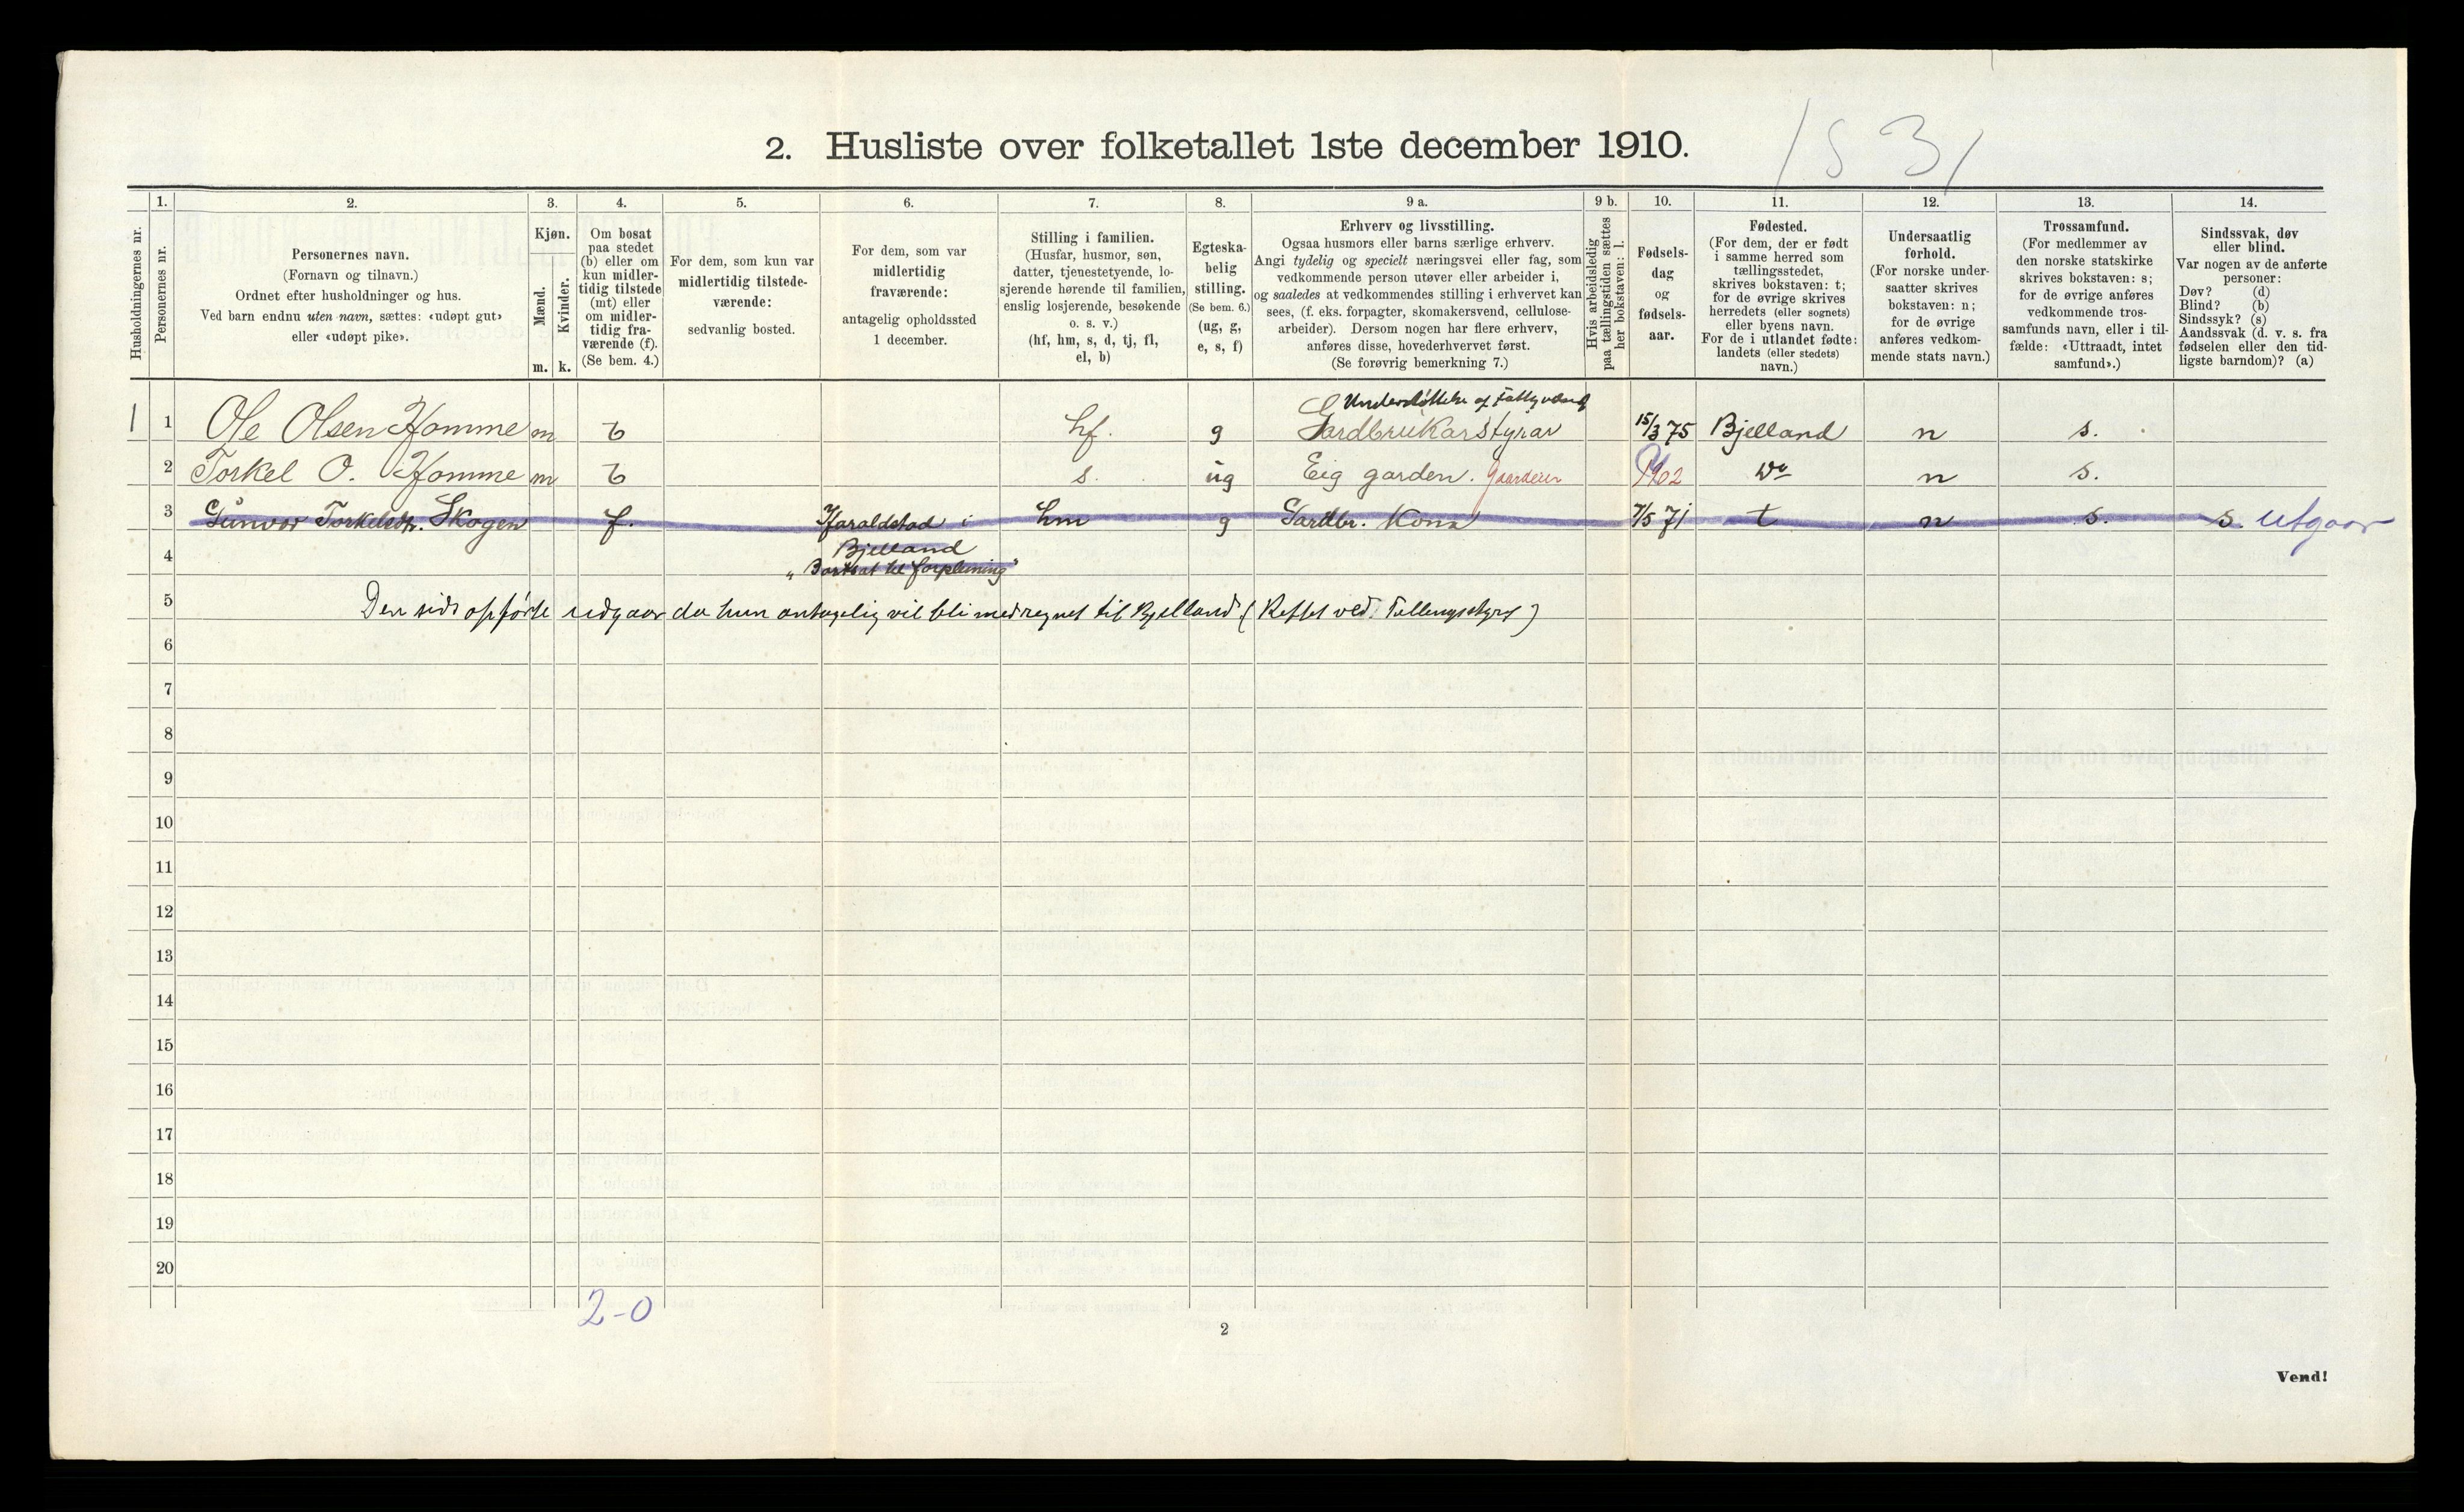 2. Husliste over folketallet 1ste december 1910.
1 S 3 1
Husholdningernes nr.
1.
Personernes nr.
2.
Personernes navn.
(Fornavn og tilnavn.)
Ordnet efter husholdninger og hus.
Ved barn endnu uten navn, sættes: «udøpt gut»
eller «udøpt pike».
3.
Kjøn.
Mænd.
Kvinder.
m. k.
4.
Om bosat
paa stedet
(b) eller om
kun midler-
tidig tilstede
(mt) eller
om midler-
tidig fra-
værende (f).
(Se bem. 4.)
5.
For dem, som kun var
midlertidig tilstede-
værende:
sedvanlig bosted.
6.
For dem, som var
midlertidig
fraværende:
antagelig opholdssted
1 december.
7.
Stilling i familien.
(Husfar, husmor, søn,
datter, tjenestetyende, lo-
sjerende hørende til familien,
enslig losjerende, besøkende
o. s. v.)
(hf, hm, s, d, tj, fl,
el, b)
8.
Egteska-
belig
stilling.
(Se bem. 6.)
(ug, g,
e, s, f)
9 a.
Erhverv og livsstilling.
Ogsaa husmors eller barns særlige erhverv.
Angi tydelig og specielt næringsvei eller fag, som
vedkommende person utøver eller arbeider i,
og saaledes at vedkommendes stilling i erhvervet kan
sees, (f. eks. forpagter, skomakersvend, cellulose-
arbeider). Dersom nogen har flere erhverv,
anføres disse, hovederhvervet først.
(Se forøvrig bemerkning 7.)
9 b.
Hvis arbeidsledig
paa tællingstiden sættes
her bokstaven: l.
10.
Fødsels-
dag
og
fødsels-
aar.
11.
Fødested.
(For dem, der er født
i samme herred som
tællingsstedet,
skrives bokstaven: t;
for de øvrige skrives
herredets (eller sognets)
eller byens navn.
For de i utlandet fødte:
landets (eller stedets)
navn.)
12.
Undersaatlig
forhold.
(For norske under-
saatter skrives
bokstaven: n;
for de øvrige
anføres vedkom-
mende stats navn.)
13.
Trossamfund.
(For medlemmer av
den norske statskirke
skrives bokstaven: s;
for de øvrige anføres
vedkommende tros-
samfunds navn, eller i til-
fælde: «Uttraadt, intet
samfund».)
14.
Sindssvak, døv
eller blind.
Var nogen av de anførte
personer:
Døv? (d)
Blind? (b)
Sindssyk? (s)
Aandssvak (d. v. s. fra
fødselen eller den tid-
ligste barndom)? (a)
Understøttelse af fattigvæsen
1 1 Ole Olsen Homme m b hf. g Gardbrukarstyrar 15/3 75 Bjelland n s.
2 Torkel O. Homme m b s. ug Eig garden. Gaardeier 1902 do n s.
3 Gunvor Torkelsdtr. Skogen f. Haraldstad i hm g Gardbr. Kona 7/5 71 t n s. s. Utgaar
4 Bjelland
"Bortsat til forpleining"
5 Den sidst opførte udgaar da hun antagelig vil bli medregnet til Bjelland (Rettet ved Tællingsstyret)
6
7
8
9
10
11
12
13
14
15
16
17
18
19
20
2-0
2
Vend!